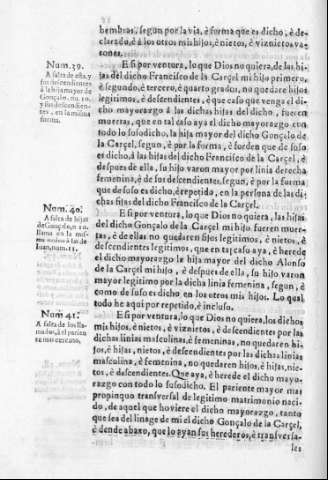 hembras, segun por la via, è forma que es dicho, è de-
clarado, è à los otros mis hijos, è nietos, è viznietos va-
rones.
Num. 39.
A falta de esta, y
sus descendientes
à la hija mayor de
Gonçalo, no. 10.
y sus descendien-
tes, en la misma
forma.
E si por ventura, lo que Dios no quiera, de las hi-
jas del dicho Francisco de la Carçel mi hijo primero,
è segundo, è tercero, è quarto grados, no quedare hijos
legitimos, è descendientes, è que caso que venga el di-
cho mayorazgo à las dichas hijas del dicho, fueren
muertas, que en tal caso aya el dicho mayorazgo con
todo lo susodicho, la hija mayor del dicho Gonçalo de
la Carçel, segun, è por la forma, è orden que de suso
es dicho, è à las hijas del dicho Francisco de la Carçel, è
despues de ella, su hijo varon mayor por linia derecha
femenina, è de sus descendientes, segun, è por la forma
que de suso es dicho, è repetida, en la persona de las di-
chas hijas del dicho Francisco de la Carçel.
Num. 40.
A falta de hijas
de Gonçalo, n. 10.
llama en la mis-
ma
Juan, num. 11.
E si por ventura, lo que Dios no quiera, las hijas
del dicho Gonçalo de la Carçel mi hijo fueren muer-
tas, è de ellas no quedaren hijos legitimos, è nietos, è
descendientes legitimos, que en tal caso aya, è herede
el dicho mayorazgo la hija mayor del dicho Alonso
de la Carçel mi hijo, è despues de ella, su hijo varon
mayor legitimo por la dicha linia femenina, segun, è
como de suso es dicho en los otros mis hijos. Lo qual
todo he aqui por repetido, è incluso.
Num. 41.
A falta de los lla-
mados, à el parien-
te mas cercano.
E si por ventura, lo que Dios no quiera, los dichos
mis hijos, è nietos, è viznietos, è descendientes por las
dichas linias masculinas, è femeninas, no quedaren hi-
jos, è hijas, nietos, è descendientes por las dichas linias
masculinas, è femenina, no quedaren hijos, è hijas, nie-
tos, è descendientes. Que aya, è herede el dicho mayo-
razgo con todo lo susodicho. El pariente mayor mas
propinquo transversal de legitimo matrimonio naci-
do, de aquel que hoviere el dicho mayorazgo, tanto
que sea del linage de mi el dicho Gonçalo de la Carçel,
è dende abaxo, que lo ayan sus herederos, è transversa-
les